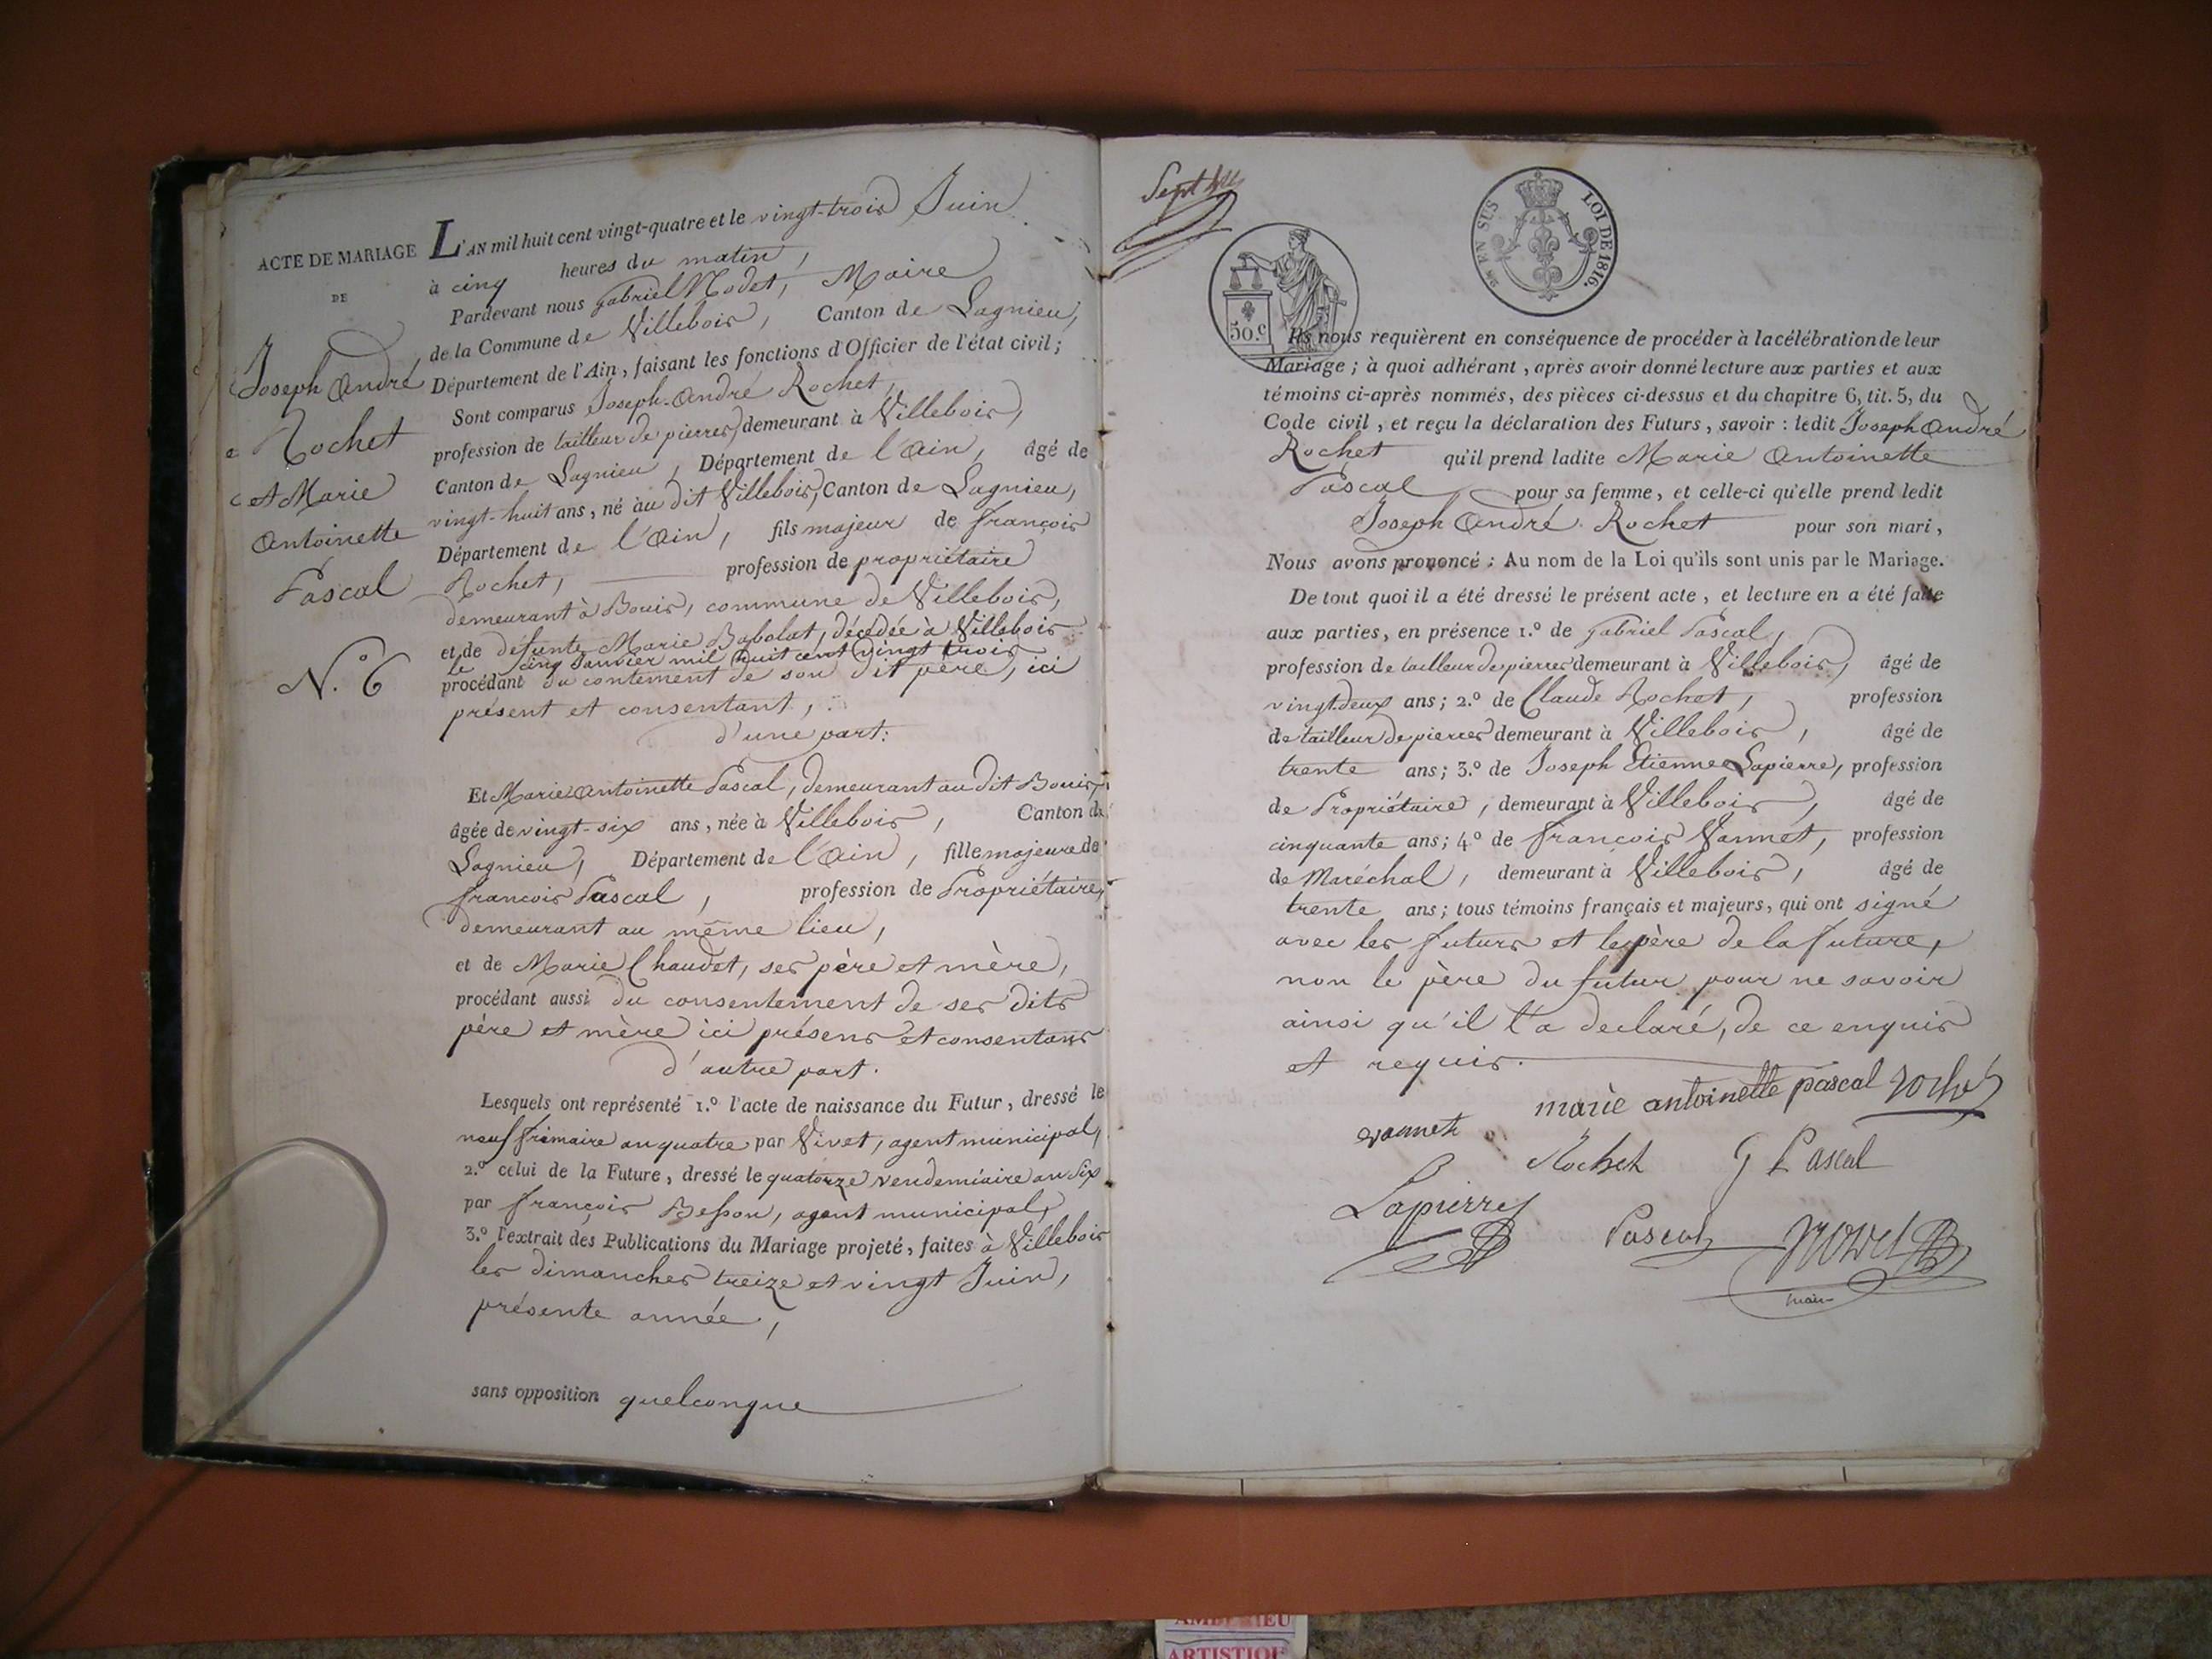 ACTE DE MARIAGE
DE
Joseph André
Rochet
et Marie
Antoinette
Pascal
N.° 6
L'AN mil huit cent vingt-quatre et le vingt-trois Juin
à cinq heures du matin,
Pardevant nous Gabriel Nodet, Maire
de la Commune de Villebois, Canton de Lagnieu,
Département de l'Ain, faisant les fonctions d'Officier de l'état civil;
Sont comparus Joseph-André Rochet,
profession de tailleur de pierres, demeurant à Villebois,
Canton de Lagnieu, Département de l'Ain, âgé de
vingt-huit ans, né au dit Villebois, Canton de Lagnieu,
Département de l'Ain, fils majeur de françois
Rochet, profession de propriétaire
demeurant à Bouis, commune de Villebois,
et de défunte Marie Babolat, décédée à Villebois
le cinq Janvier mil huit cent vingt trois
procédant du contement de son dit père, ici
présent et consentant,
d'une part:
Et Marie Antoinette Pascal, demeurant au dit Bouis,
âgée de vingt-six ans, née à Villebois, Canton de
Lagnieu, Département de l'Ain, fille majeure de
françois Pascal, profession de Propriétaire,
demeurant au même lieu,
et de Marie Chaudet, ses père et mère,
procédant aussi du consentement de ses dits
père et mère ici présens et consentans
d'autre part.
Lesquels ont représenté 1.° l'acte de naissance du Futur, dressé le
neuf frimaire an quatre par Vivet, agent municipal,
2.° celui de la Future, dressé le quatorze vendemiaire an six
par françois Besson, agent municipal,
3.° l'extrait des Publications du Mariage projeté, faites à Villebois
les dimanches treize et vingt Juin,
présente année,
sans opposition quelconque
EN SUS
LOI DE 1816.
50.c
Ils nous requièrent en conséquence de procéder à la célébration de leur
Mariage; à quoi adhérant, après avoir donné lecture aux parties et aux
témoins ci-après nommés, des pièces ci-dessus et du chapitre 6, tit. 5, du
Code civil, et reçu la déclaration des Futurs, savoir: ledit Joseph André
Rochet qu'il prend ladite Marie Antoinette
Pascal pour sa femme, et celle-ci qu'elle prend ledit
Joseph André Rochet pour son mari,
Nous avons prononcé: Au nom de la Loi qu'ils sont unis par le Mariage.
De tout quoi il a été dressé le présent acte, et lecture en a été faite
aux parties, en présence 1.° de Gabriel Pascal,
profession de tailleur de pierres demeurant à Villebois, âgé de
vingt-deux ans; 2.° de Claude Rochet, profession
de tailleur de pierres demeurant à Villebois, âgé de
trente ans; 3.° de Joseph Etienne Lapierre, profession
de Propriétaire, demeurant à Villebois, âgé de
cinquante ans; 4.° de françois Vannet, profession
de Maréchal, demeurant à Villebois, âgé de
trente ans; tous témoins français et majeurs, qui ont signé
avec les futurs et le père de la future,
non le père du futur pour ne savoir
ainsi qu'il l'a declaré, de ce enquis
et requis.
marie antoinette pascal rochet
vannet
Rochet G Pascal
Lapierre
Pascal
maire
ARTISTIQUE